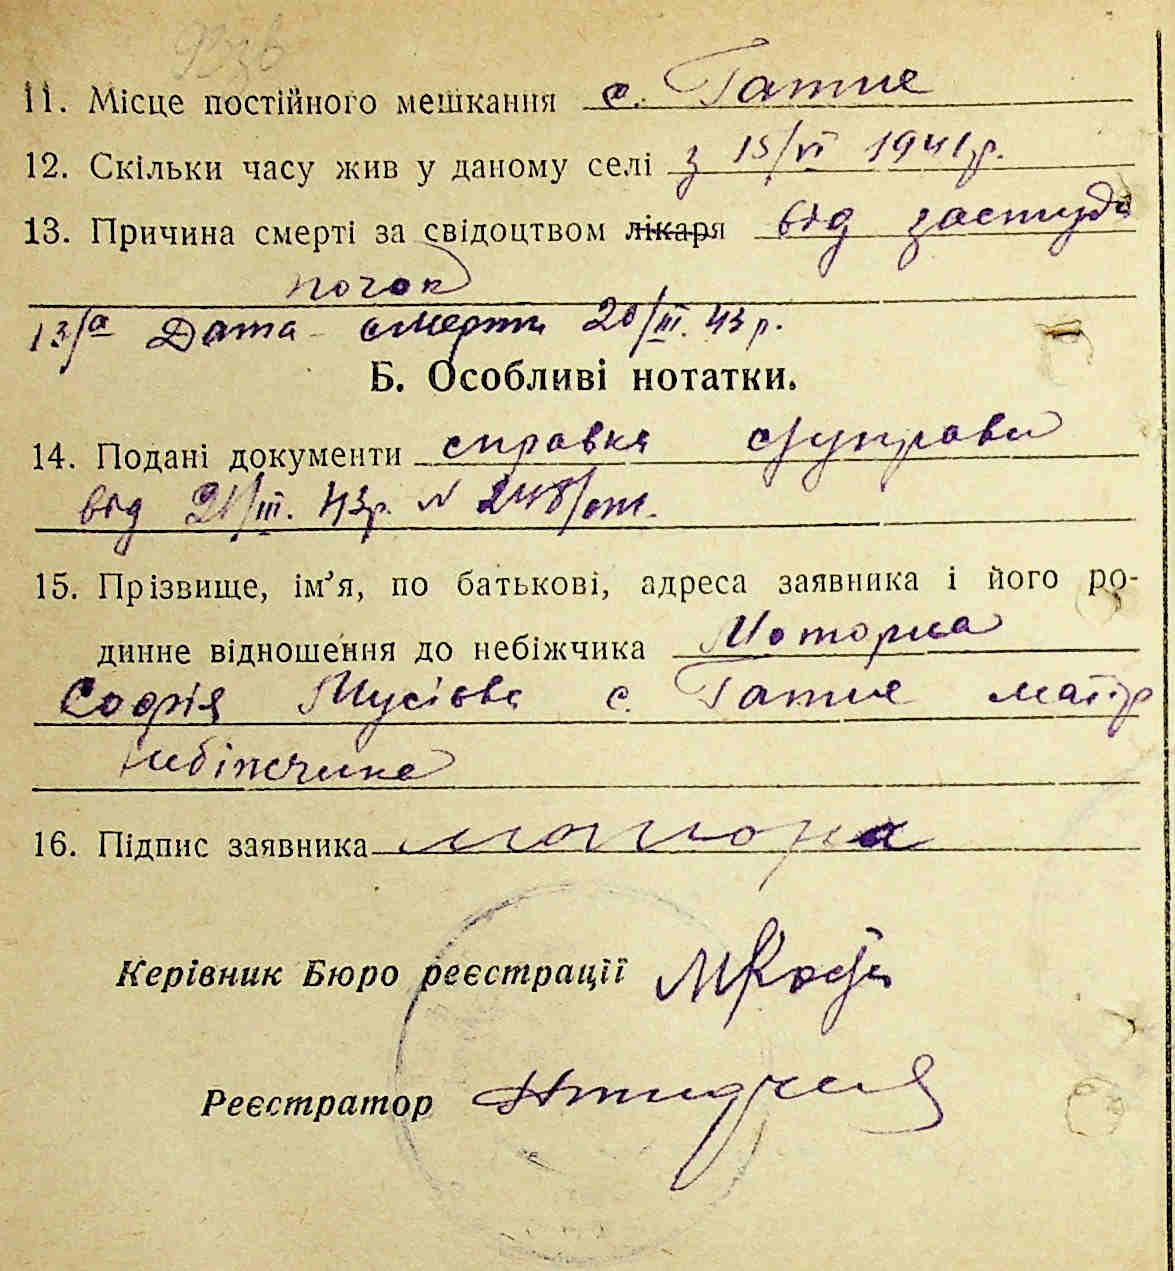 11. Місце постійного мешкання с. Гатне
12. Скільки часу жив у даному селі з 15/VI 1941р.
13. Причина смерті за свідоцтвом лікаря від застуди
почок
13/а Дата смерти 20/III. 43 р.
Б. Особливі нотатки.
14. Подані документи справка с/управи
від 21/III. 43р. N 248/
15. Прізвище, ім’я, по батькові, адреса заявника і його ро-
динне відношення до небіжчика Моторна
Софія Мусіївна с. Гатне матір
небіжчика
16. Підпис заявника
Керівник Бюро реєстрації
Реєстратор